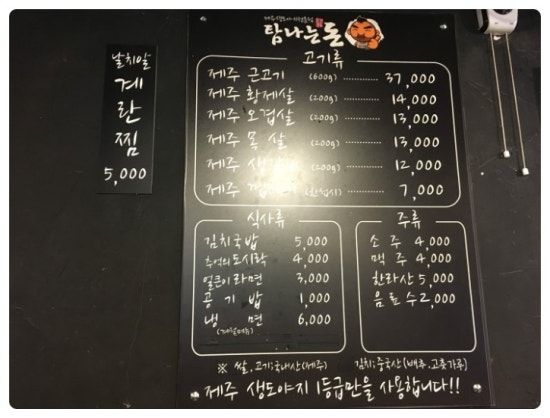 날치알
계란찜
5,000
탐나는돈
고기류
제주 근고기 (600g) 37,000
제주 황제살 (200g) 14,000
제주 오겹살 (200g) 13,000
제주 목살 (200g) 13,000
제주 (200g) 12,000
제주 7,000
식사류
김치국밥 5,000
추억의 도시락 4,000
얼큰이 라면 3,000
공기밥 1,000
냉면 6,000
(계절메뉴)
주류
소주 4,000
맥주 4,000
한라산 5,000
음료수 2,000
※ 쌀, 고기:국내산(제주) 김치:중국산 (배추, 고춧가루)
제주 생도야지 1등급만을 사용합니다!!